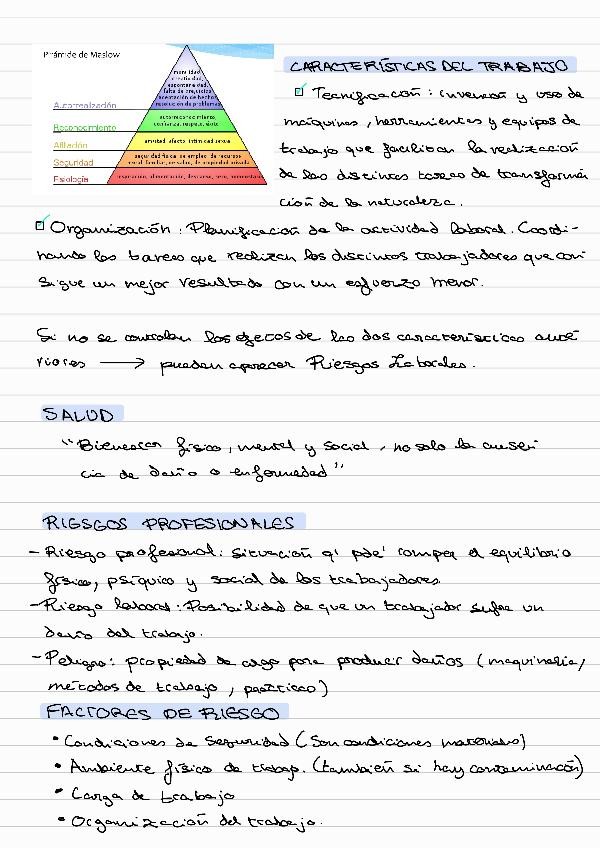 Pirámide de Maslow
CARACTERÍSTICAS DEL TRABAJO
moralidad,
creatividad,
espontaneidad,
falta de prejuicios,
aceptación de hechos,
resolución de problemas
Autorrealización
autorreconocimiento,
confianza, respeto, éxito
Reconocimiento
amistad, afecto, intimidad sexual
Afiliación
seguridad física, de empleo, de recursos,
moral, familiar, de salud, de propiedad privada
Seguridad
respiración, alimentación, descanso, sexo, homeostasis
Fisiología
Tecnificación: invención y uso de
máquinas, herramientas y equipos de
trabajo que facilitan la realización
de las distintas tareas de transforma
ción de la naturaleza.
Organización: Planificación de la actividad laboral. Coordi-
nando las tareas que realizan los distintos trabajadores que con
sigue un mejor resultado con un esfuerzo menor.
Si no se controlan los efectos de las dos características ante
riores → pueden aparecer Riesgos Laborales.
SALUD
"Bienestar físico, mental y social, no solo la ausen
cia de daño o enfermedad"
RIESGOS PROFESIONALES
- Riesgo profesional: Situación q' pde' romper el equilibrio
físico, psíquico y social de los trabajadores.
- Riesgo laboral: Posibilidad de que un trabajador sufra un
daño del trabajo.
- Peligro: propiedad de algo para producir daños (maquinaria,
métodos de trabajo, prácticas)
FACTORES DE RIESGO
• Condiciones de seguridad (Son condiciones materiales)
• Ambiente físico de trabajo. (también si hay contaminación)
• Carga de trabajo
• Organización del trabajo.